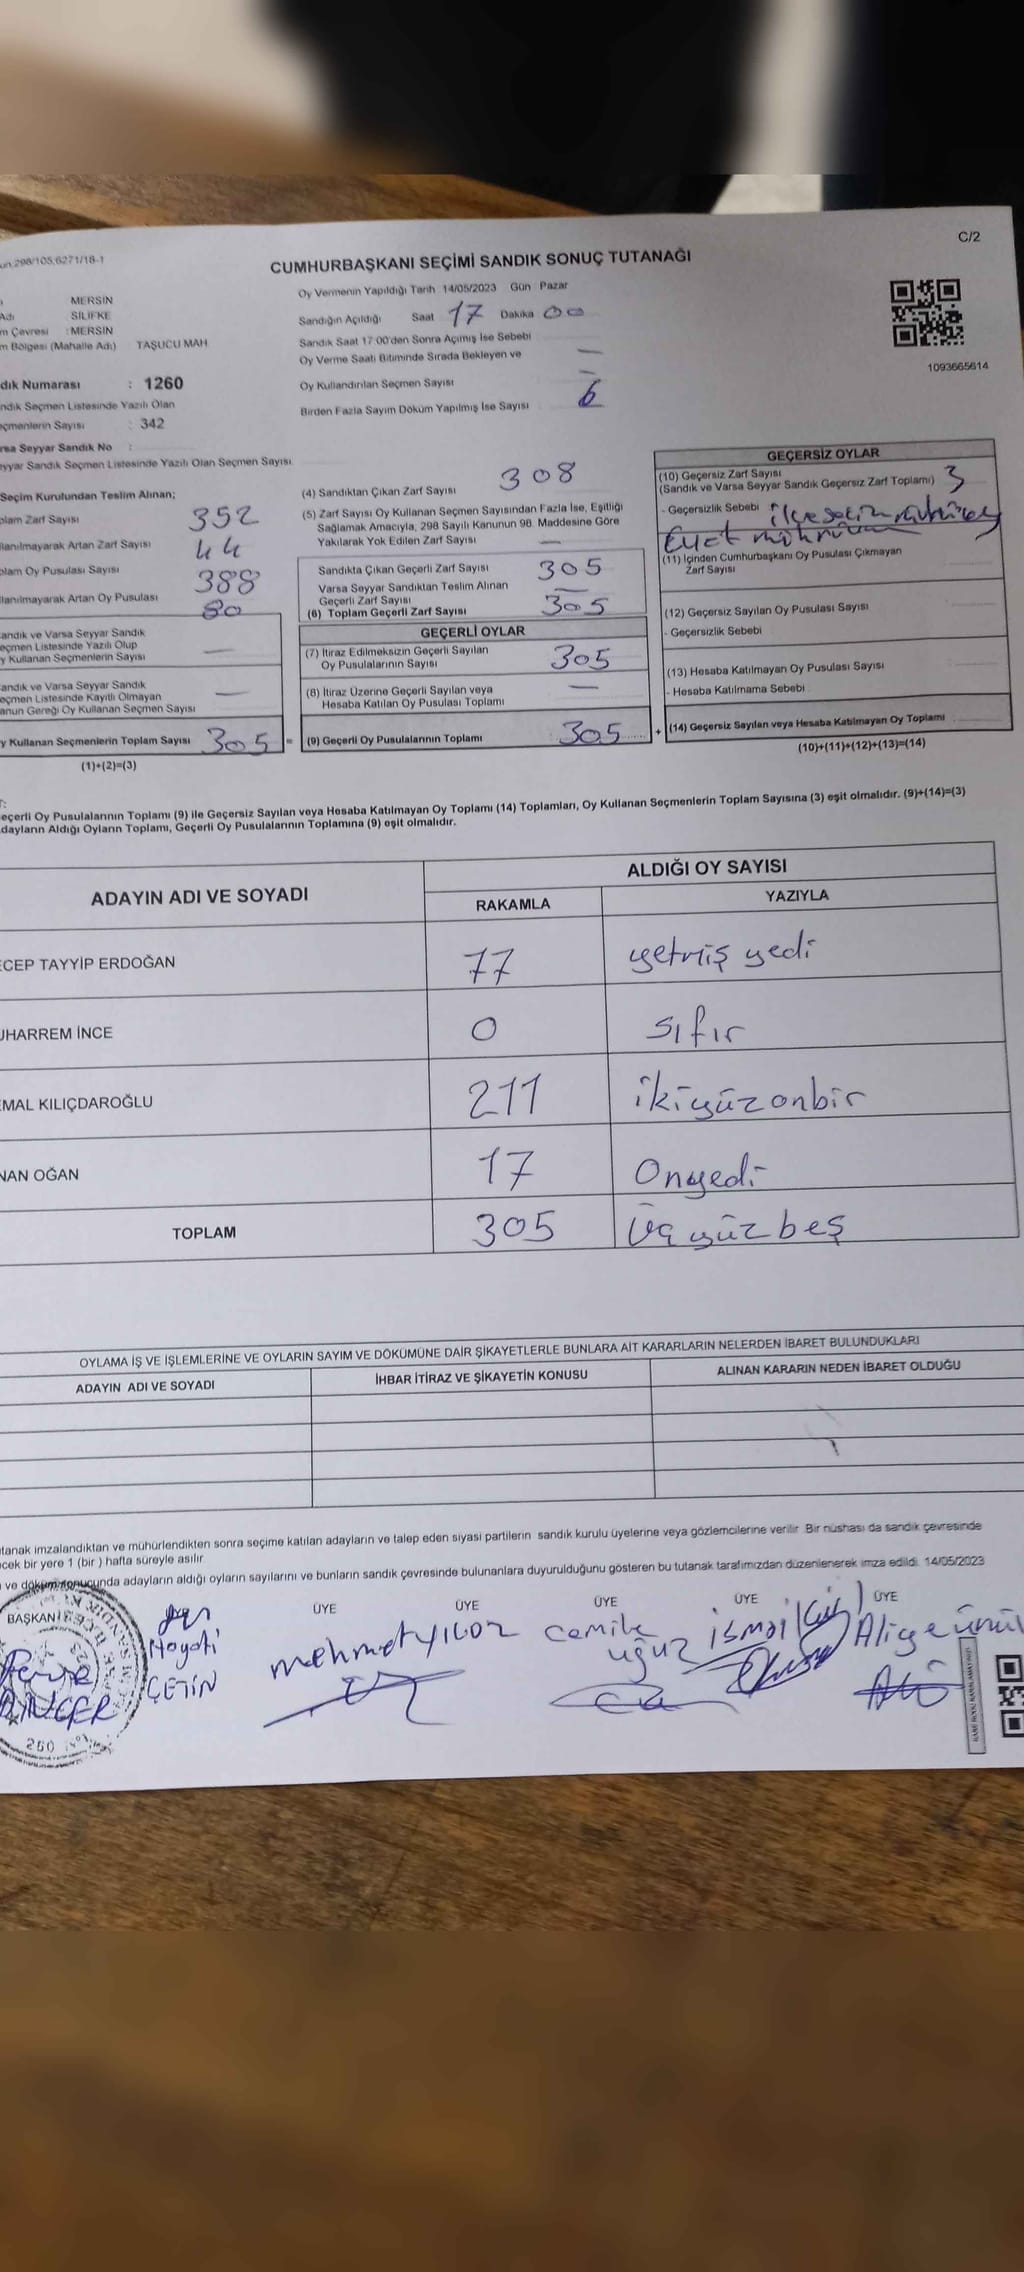 C/2
298/105,6271/18-1
CUMHURBAŞKANI SEÇİMİ SANDIK SONUÇ TUTANAĞI
MERSİN
Adı SİLİFKE
m Çevresi : MERSİN
m Bölgesi (Mahalle Adı) TAŞUCU MAH
dık Numarası : 1260
ndık Seçmen Listesinde Yazılı Olan
eçmenlerin Sayısı : 342
rsa Seyyar Sandık No :
eyyar Sandık Seçmen Listesinde Yazılı Olan Seçmen Sayısı
Oy Vermenin Yapıldığı Tarih 14/05/2023 Gün Pazar
Sandığın Açıldığı Saat 17 Dakika 00
Sandık Saat 17:00'den Sonra Açmış İse Sebebi
Oy Verme Saati Bitiminde Sırada Bekleyen ve —
Oy Kullandırılan Seçmen Sayısı —
Birden Fazla Sayım Döküm Yapılmış İse Sayısı 6
1093665614
Seçim Kurulundan Teslim Alınan;
plam Zarf Sayısı 352
llanılmayarak Artan Zarf Sayısı 44
plam Oy Pusulası Sayısı 388
llanılmayarak Artan Oy Pusulası 80
andık ve Varsa Seyyar Sandık
eçmen Listesinde Yazılı Olup
y Kullanan Seçmenlerin Sayısı —
andık ve Varsa Seyyar Sandık
eçmen Listesinde Kayıtlı Olmayan
anun Gereği Oy Kullanan Seçmen Sayısı —
y Kullanan Seçmenlerin Toplam Sayısı 305 =
(1)+(2)=(3)
(4) Sandıktan Çıkan Zarf Sayısı 308
(5) Zarf Sayısı Oy Kullanan Seçmen Sayısından Fazla İse, Eşitliği
Sağlamak Amacıyla, 298 Sayılı Kanunun 98. Maddesine Göre
Yakılarak Yok Edilen Zarf Sayısı —
Sandıkta Çıkan Geçerli Zarf Sayısı 305
Varsa Seyyar Sandıktan Teslim Alınan
Geçerli Zarf Sayısı —
(6) Toplam Geçerli Zarf Sayısı 305
GEÇERLİ OYLAR
(7) İtiraz Edilmeksizin Geçerli Sayılan
Oy Pusulalarının Sayısı 305
(8) İtiraz Üzerine Geçerli Sayılan veya
Hesaba Katılan Oy Pusulası Toplamı —
(9) Geçerli Oy Pusulalarının Toplamı 305 +
GEÇERSİZ OYLAR
(10) Geçersiz Zarf Sayısı
(Sandık ve Varsa Seyyar Sandık Geçersiz Zarf Toplamı) 3
- Geçersizlik Sebebi
(11) İçinden Cumhurbaşkanı Oy Pusulası Çıkmayan
Zarf Sayısı
(12) Geçersiz Sayılan Oy Pusulası Sayısı
- Geçersizlik Sebebi
(13) Hesaba Katılmayan Oy Pusulası Sayısı
- Hesaba Katılmama Sebebi
(14) Geçersiz Sayılan veya Hesaba Katılmayan Oy Toplamı
(10)+(11)+(12)+(13)=(14)
eçerli Oy Pusulalarının Toplamı (9) ile Geçersiz Sayılan veya Hesaba Katılmayan Oy Toplamı (14) Toplamları, Oy Kullanan Seçmenlerin Toplam Sayısına (3) eşit olmalıdır. (9)+(14)=(3)
dayların Aldığı Oyların Toplamı, Geçerli Oy Pusulalarının Toplamına (9) eşit olmalıdır.
ADAYIN ADI VE SOYADI ALDIĞI OY SAYISI
RAKAMLA YAZIYLA
CEP TAYYİP ERDOĞAN 77 yetmiş yedi
UHARREM İNCE 0 sıfır
MAL KILIÇDAROĞLU 211 ikiyüzonbir
NAN OĞAN 17 Onyedi
TOPLAM 305 Üçyüzbeş
OYLAMA İŞ VE İŞLEMLERİNE VE OYLARIN SAYIM VE DÖKÜMÜNE DAİR ŞİKAYETLERLE BUNLARA AİT KARARLARIN NELERDEN İBARET BULUNDUKLARI
ADAYIN ADI VE SOYADI İHBAR İTİRAZ VE ŞİKAYETİN KONUSU ALINAN KARARIN NEDEN İBARET OLDUĞU
tanak imzalandıktan ve mühürlendikten sonra seçime katılan adayların ve talep eden siyasi partilerin sandık kurulu üyelerine veya gözlemcilerine verilir. Bir nüshası da sandık çevresinde
cek bir yere 1 (bir) hafta süreyle asılır.
ve döküm sonucunda adayların aldığı oyların sayılarını ve bunların sandık çevresinde bulunanlara duyurulduğunu gösteren bu tutanak tarafımızdan düzenlenerek imza edildi. 14/05/2023
BAŞKAN ÜYE ÜYE ÜYE ÜYE ÜYE
Hayati ÇETİN
mehmet yıloz
Camile uğuz
ismail
Aliye ünül
260